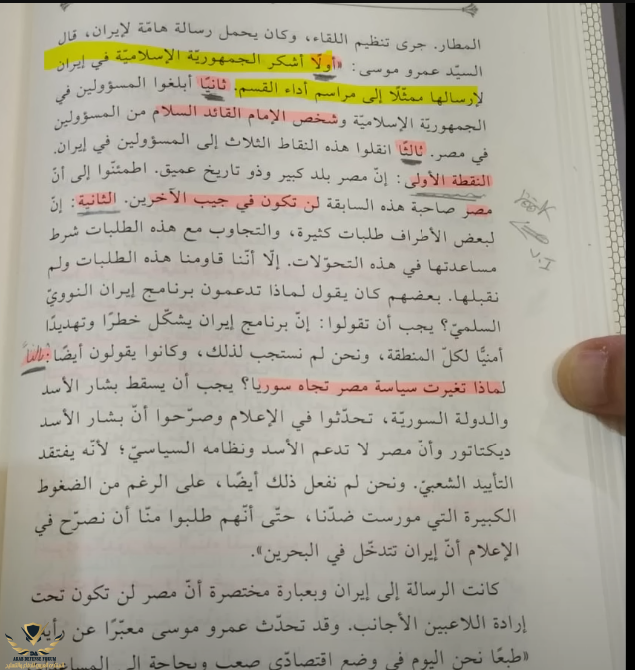 المطار. جرى تنظيم اللقاء، وكان يحمل رسالة هامّة لإيران، قال
السيّد عمرو موسى: «أولًا أشكر الجمهوريّة الإسلاميّة في إيران
لإرسالها ممثّلًا إلى مراسم أداء القسم. ثانيًا أبلغوا المسؤولين في
الجمهوريّة الإسلاميّة وشخص الإمام القائد السلام من المسؤولين
في مصر. ثالثًا انقلوا هذه النقاط الثلاث إلى المسؤولين في إيران.
النقطة الأولى: إنّ مصر بلد كبير وذو تاريخ عميق. اطمئنّوا إلى أنّ
مصر صاحبة هذه السابقة لن تكون في جيب الآخرين. الثانية: إنّ
لبعض الأطراف طلبات كثيرة، والتجاوب مع هذه الطلبات شرط
مساعدتها في هذه التحوّلات. إلّا أنّنا قاومنا هذه الطلبات ولم
نقبلها. بعضهم كان يقول لماذا تدعمون برنامج إيران النوويّ
السلميّ؟ يجب أن تقولوا: إنّ برنامج إيران يشكّل خطرًا وتهديدًا
أمنيًّا لكلّ المنطقة، ونحن لم نستجب لذلك، وكانوا يقولون أيضًا: ثالثًا
لماذا تغيرت سياسة مصر تجاه سوريا؟ يجب أن يسقط بشار الأسد
والدولة السوريّة، تحدّثوا في الإعلام وصرّحوا أنّ بشار الأسد
ديكتاتور وأنّ مصر لا تدعم الأسد ونظامه السياسيّ؛ لأنّه يفتقد
التأييد الشعبيّ. ونحن لم نفعل ذلك أيضًا، على الرغم من الضغوط
الكبيرة التي مورست ضدّنا، حتّى أنّهم طلبوا منّا أن نصرّح في
الإعلام أنّ إيران تتدخّل في البحرين».
كانت الرسالة إلى إيران وبعبارة مختصرة أنّ مصر لن تكون تحت
إرادة اللاعبين الأجانب. وقد تحدّث عمرو موسى معبّرًا عن رأيه
«طبعًا نحن اليوم في وضع اقتصاديّ صعب وبحاجة إلى
ARAB DEFENSE FORUM